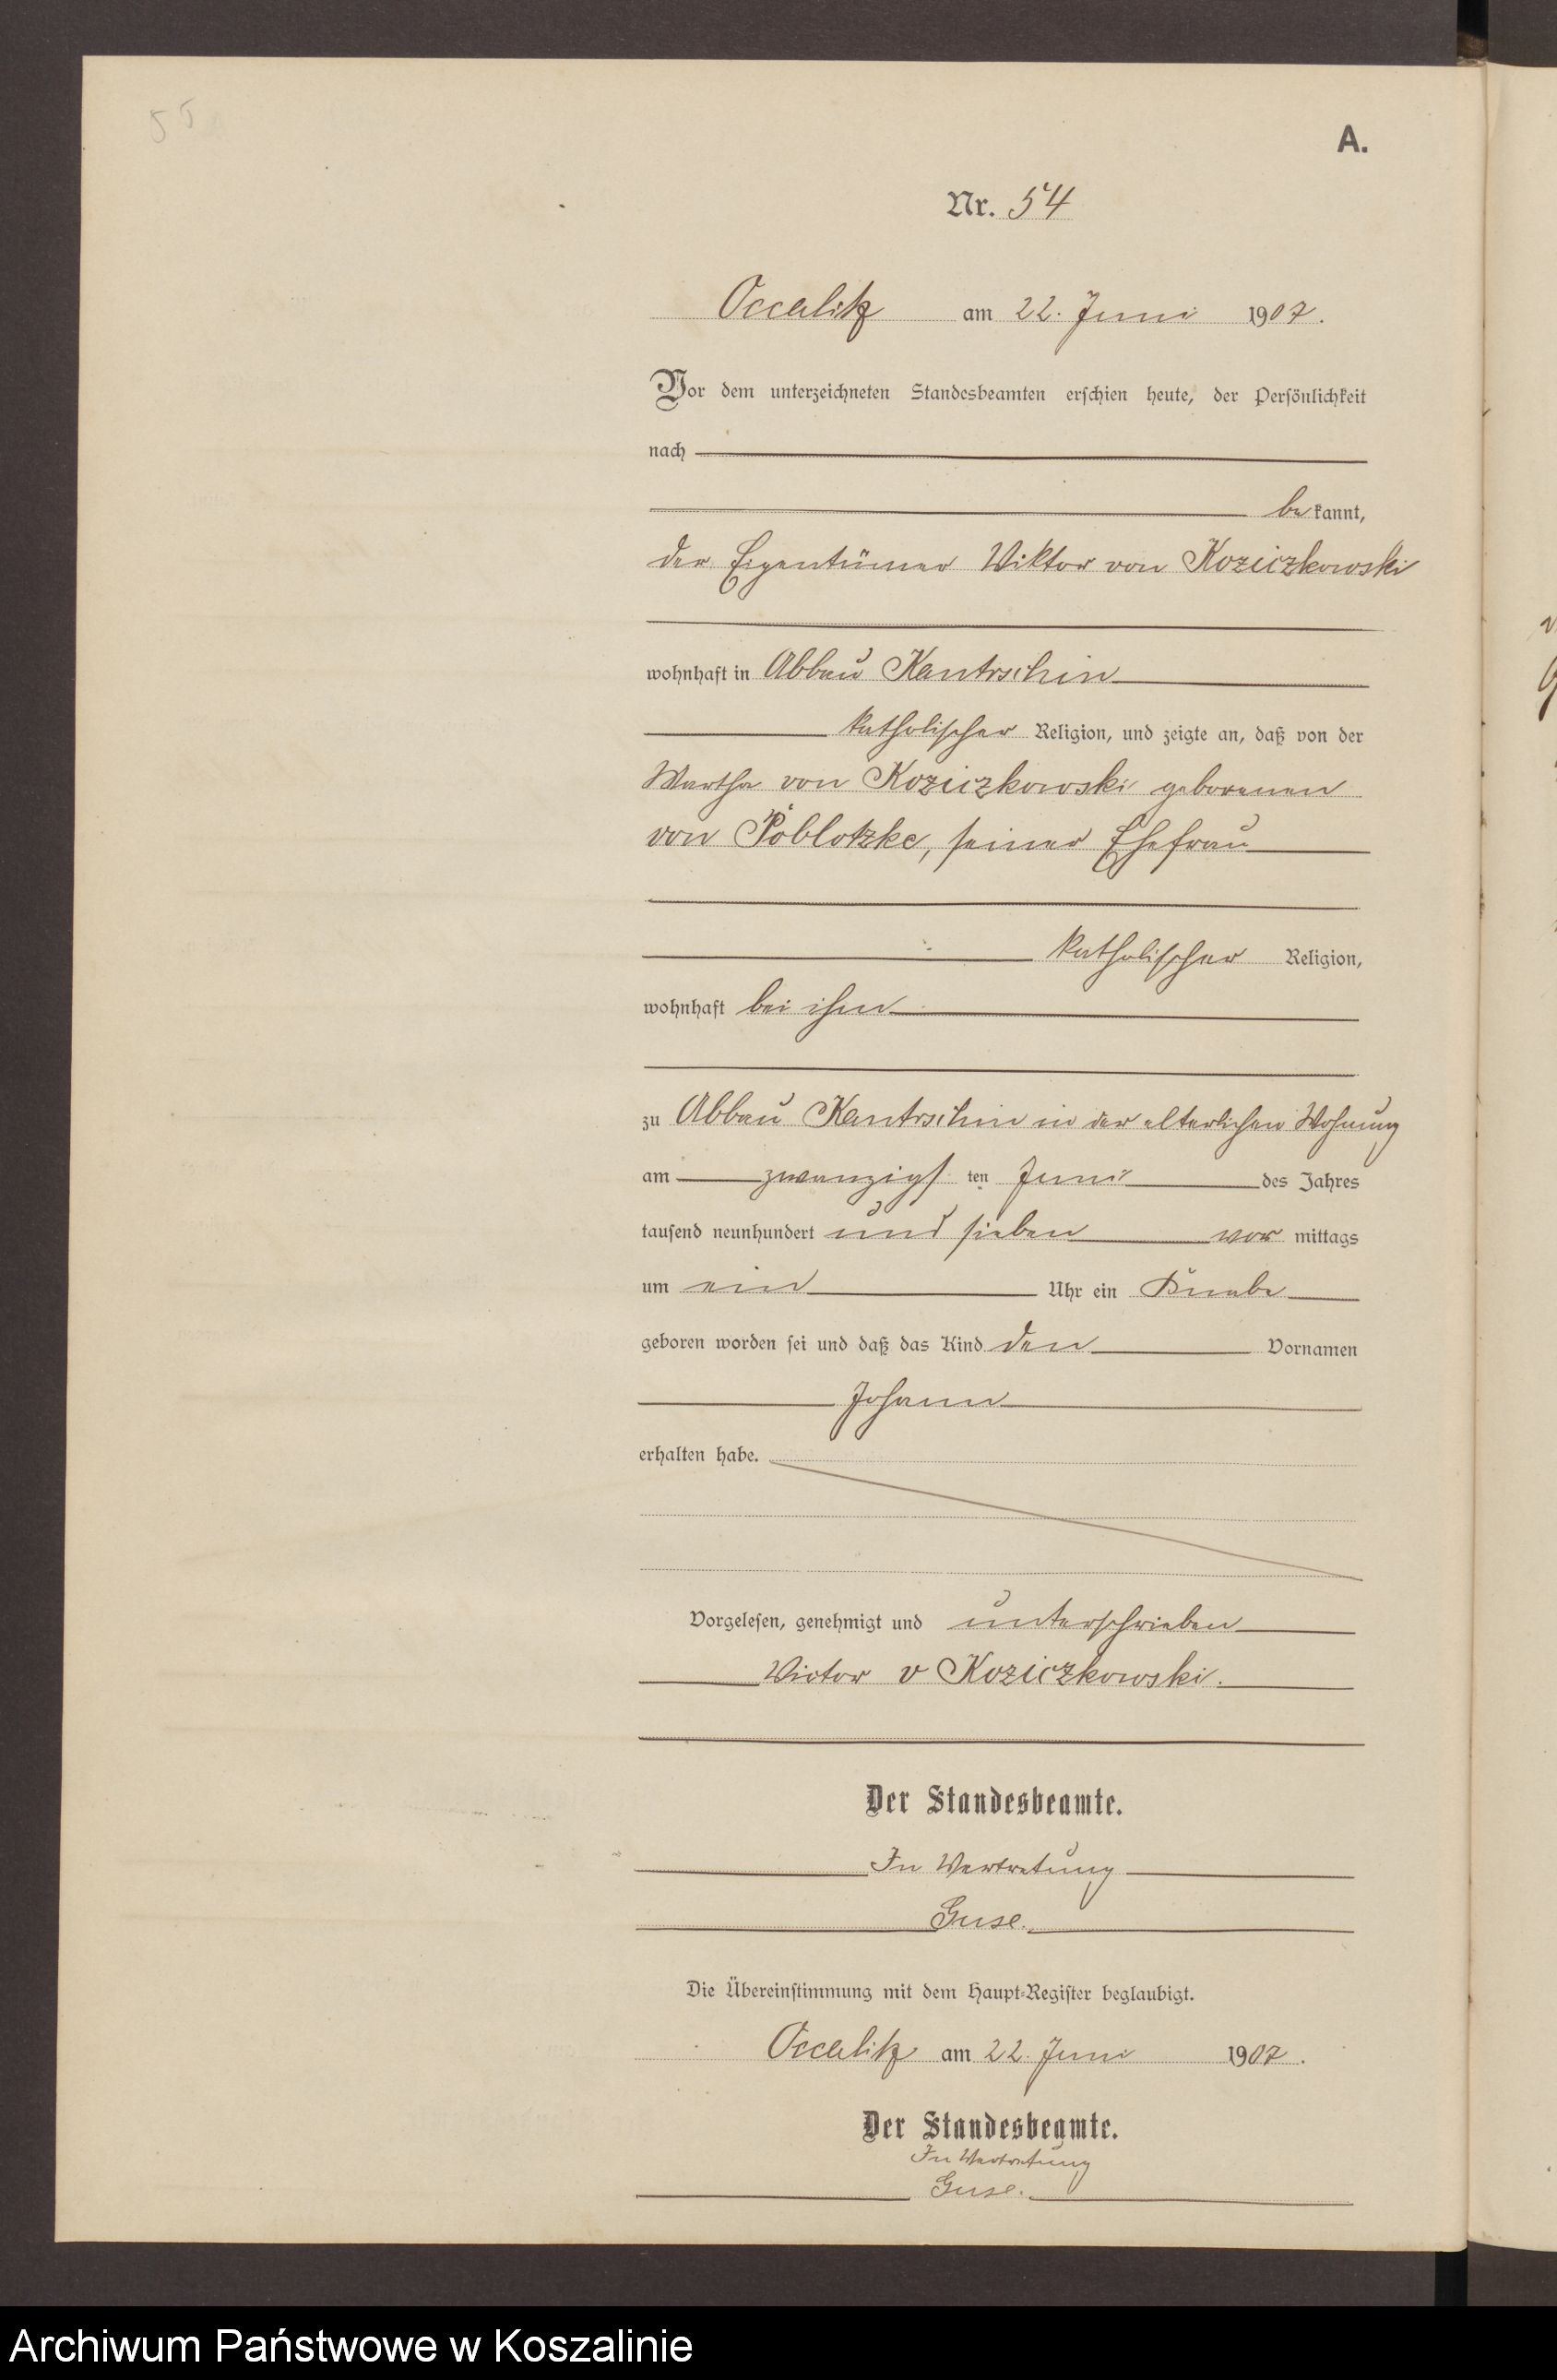 55
A.
Nr. 54
Occalitz am 22. Juni 1907.
Vor dem unterzeichneten Standesbeamten erschien heute, der Persönlichkeit
nach
bekannt,
der Eigentümer Viktor von Koziczkowski
wohnhaft in Abbau Kantrschin
katholischer Religion, und zeigte an, daß von der
Martha von Koziczkowski geborenen
von Poblotzke, seiner Ehefrau
katholischer Religion,
wohnhaft bei ihm
zu Abbau Kantrschin in der elterlichen Wohnung
am zwanzigsten Juni des Jahres
tausend neunhundert und sieben vor mittags
um ein Uhr ein Knabe
geboren worden sei und daß das Kind den Vornamen
Johann
erhalten habe.
Vorgelesen, genehmigt und unterschrieben
Victor v Koziczkowski.
Der Standesbeamte.
In Vertretung
Guse.
Die Übereinstimmung mit dem Haupt-Register beglaubigt.
Occalitz am 22. Juni 1907.
Der Standesbeamte.
In Vertretung
Guse.
Archiwum Państwowe w Koszalinie